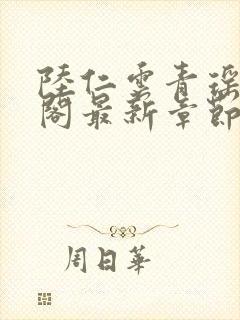 陸仁雲青瑤
閣最新章節
周日華